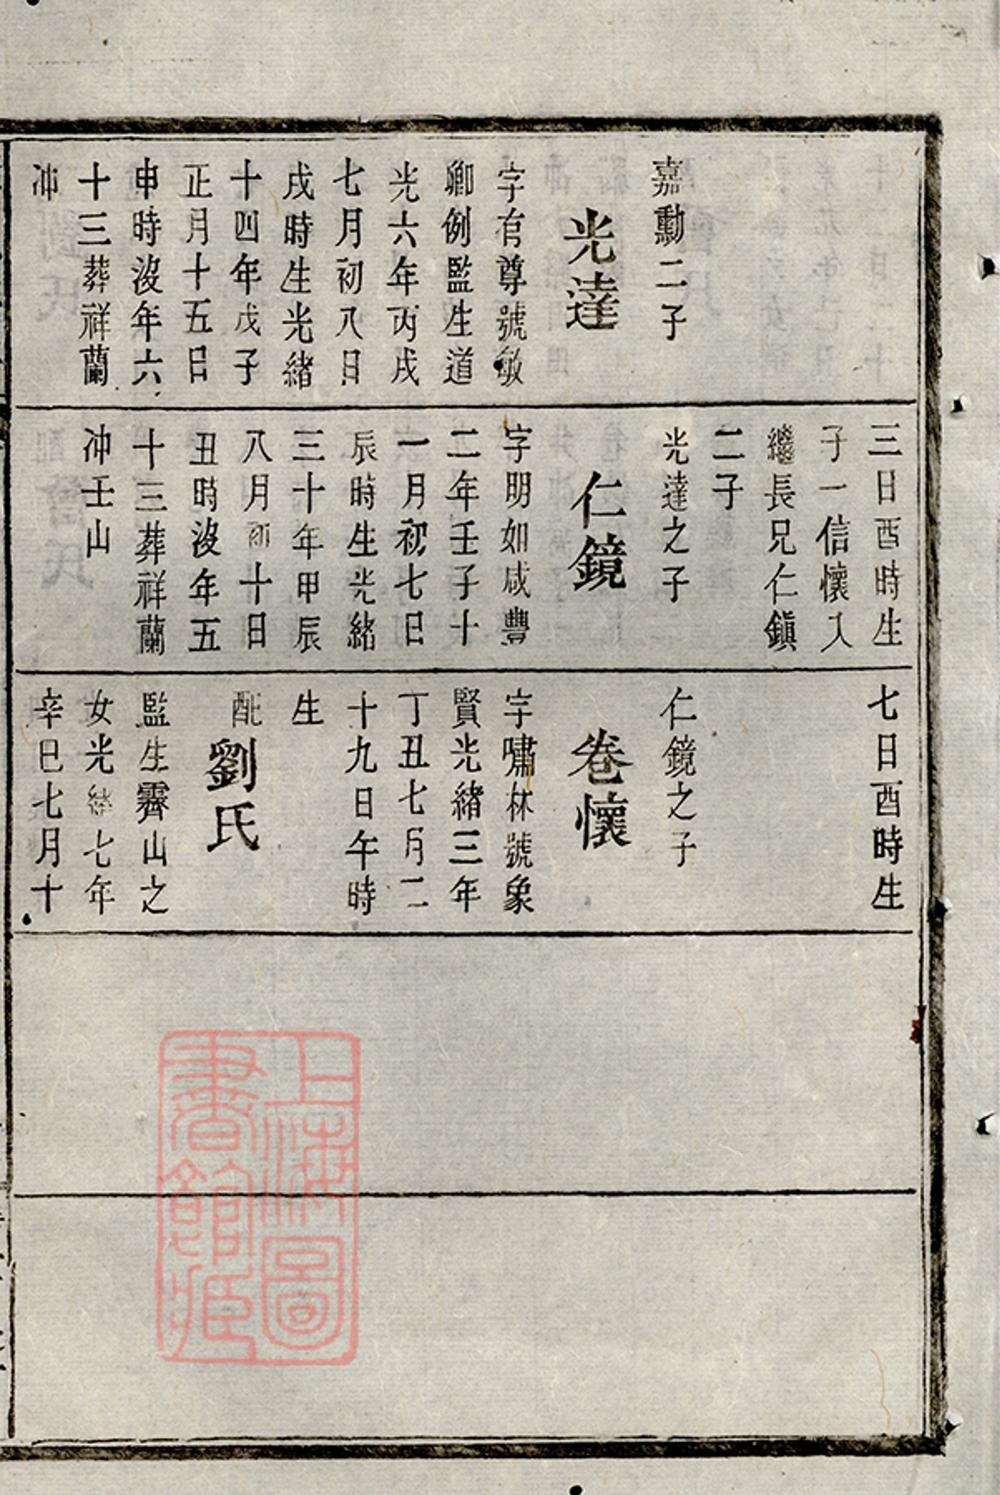 嘉勳二子
光達
字官尊號敏
卿例監生道
光六年丙戌
七月初八日
戌時生光緒
十四年戊子
正月十五日
申時沒年六
十三葬祥蘭
冲
三日酉時生
子一信懷入
繼長兄仁鎮
二子
光達之子
仁鏡
字明如咸豐
二年壬子十
一月初七日
辰時生光緒
三十年甲辰
八月初十日
丑時沒年五
十三葬祥蘭
冲壬山
七日酉時生
仁鏡之子
卷懷
字嘯林號象
賢光緒三年
丁丑七月二
十九日午時
生
配
劉氏
監生霽山之
女光緒七年
辛巳七月十
上海圖
書館藏